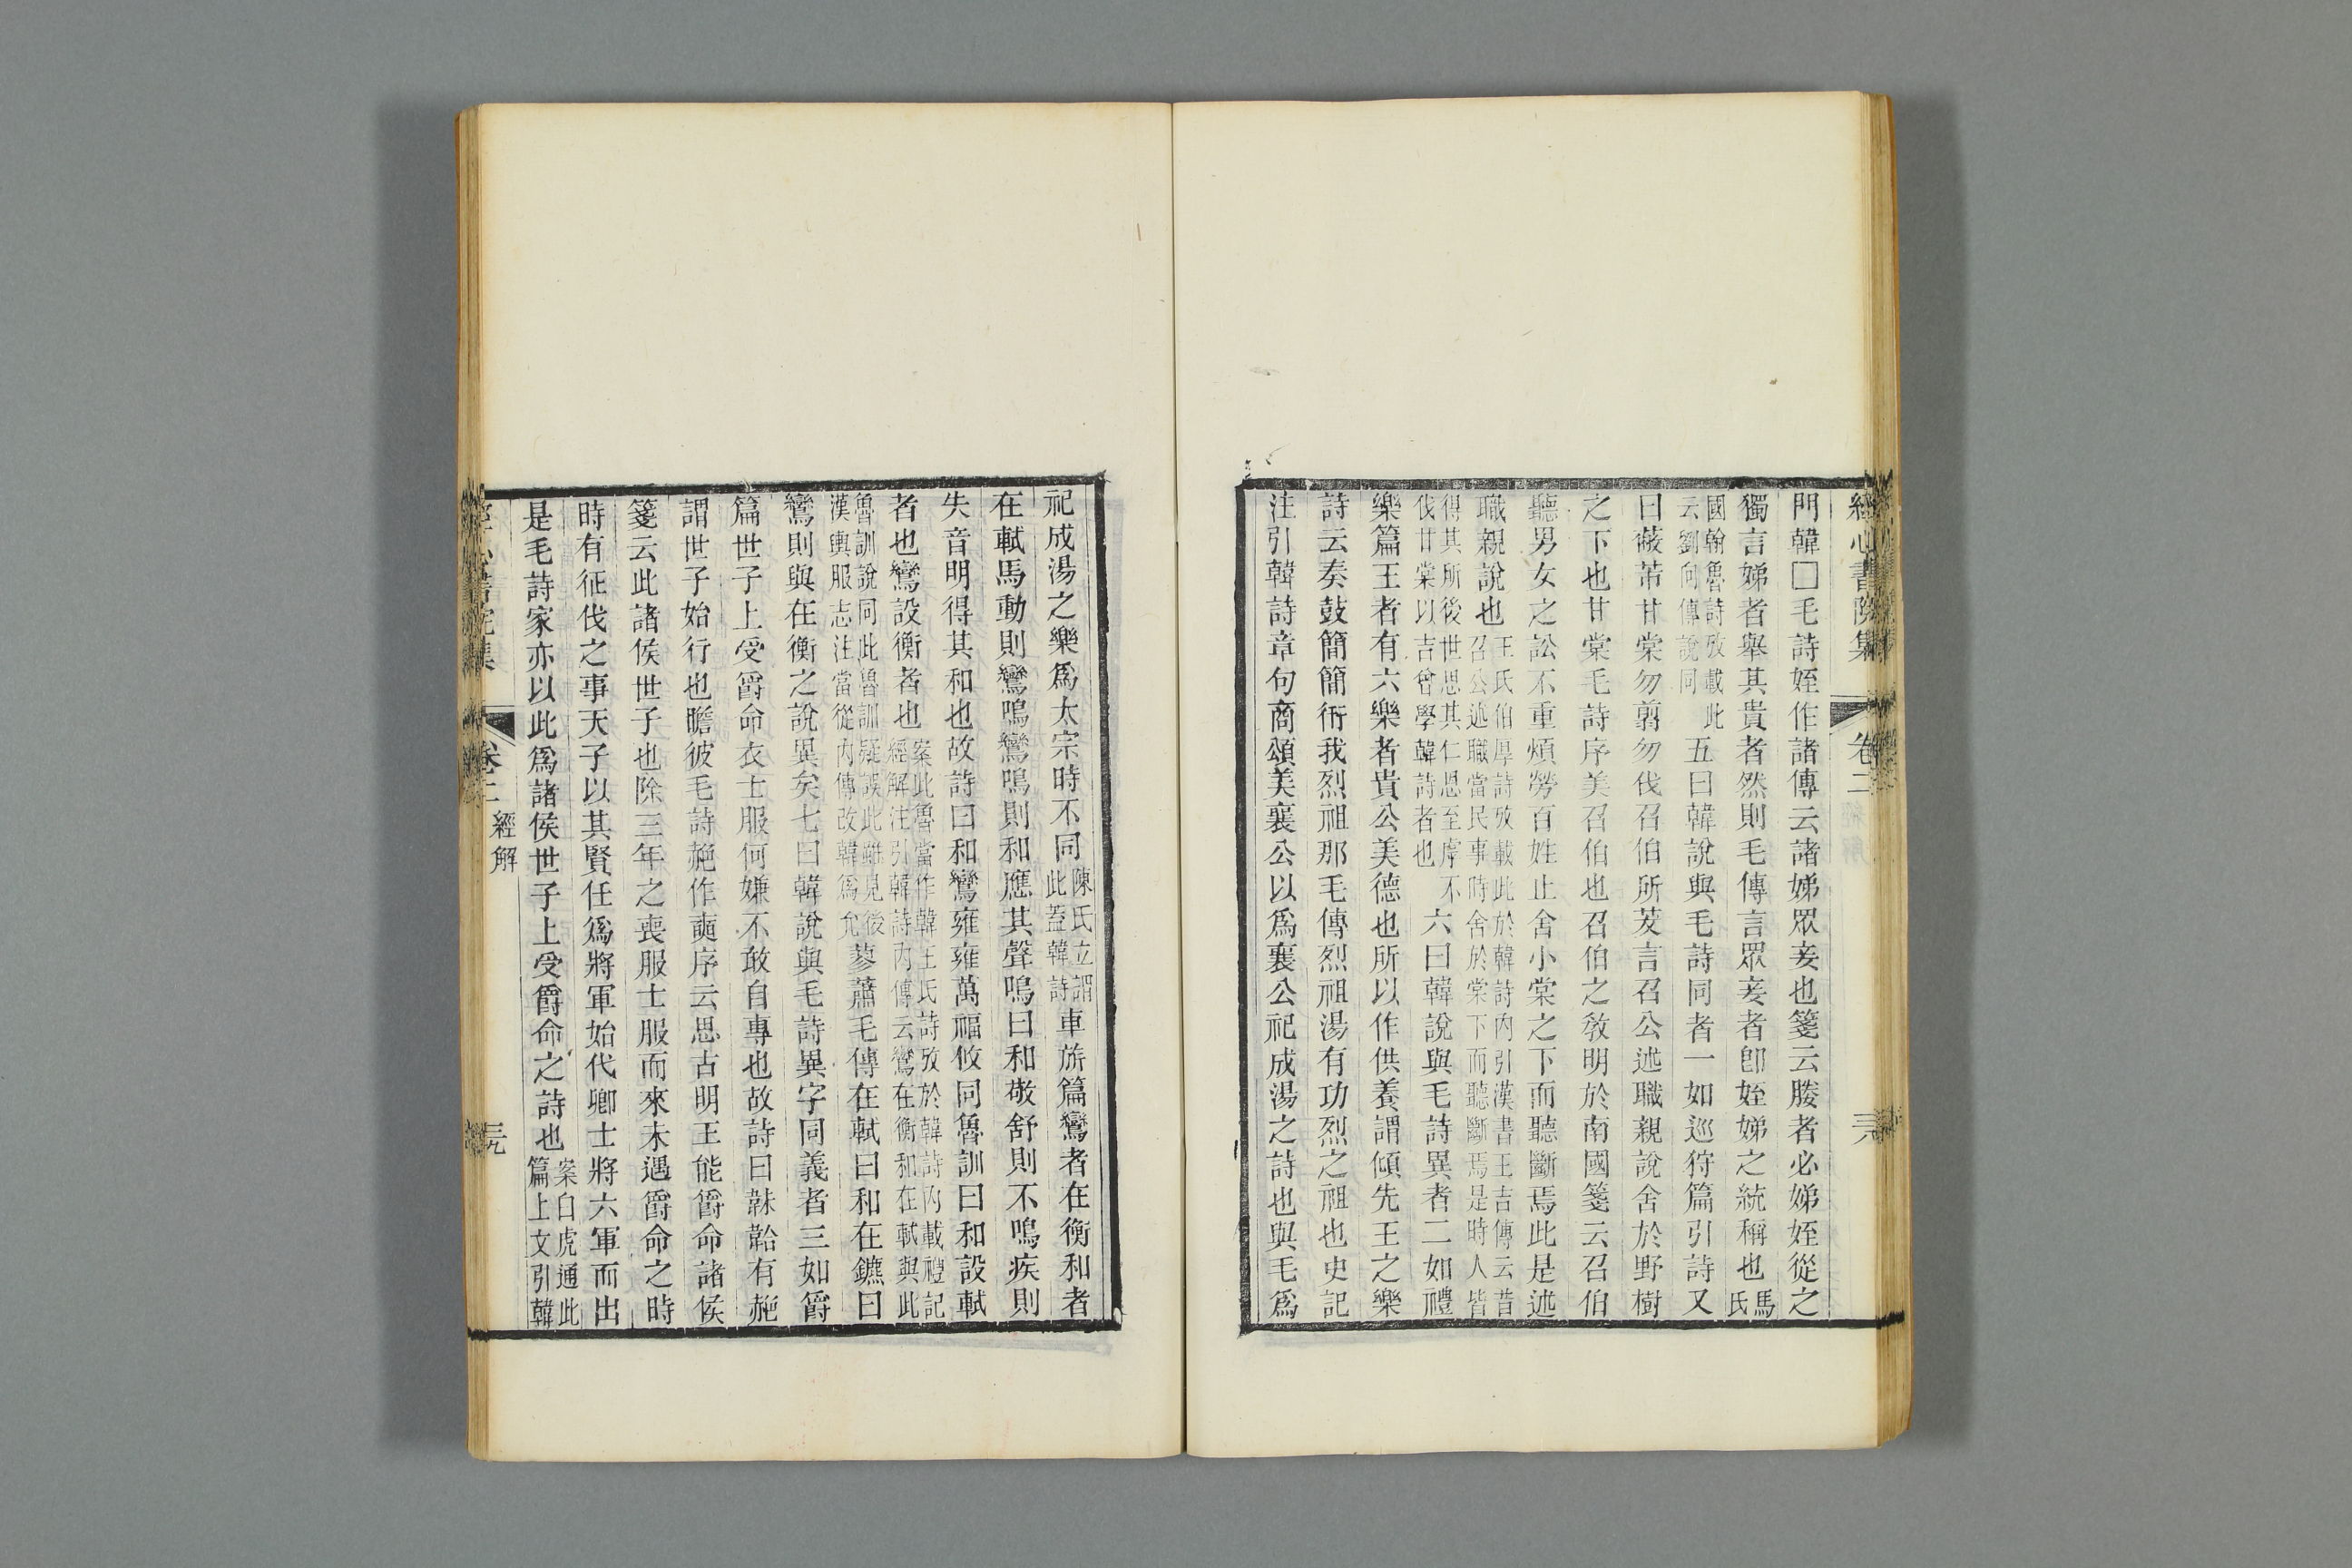 經心書院集
卷二
經解
門韓□毛詩姪作諸傳云諸娣眾妾也箋云媵者必娣姪從之
獨言娣者舉其貴者然則毛傳言眾妾者卽姪娣之統稱也馬氏
國翰魯詩攷載此
云劉向傳說同
五曰韓說與毛詩同者一如巡狩篇引詩又
曰蔽芾甘棠勿翦勿伐召伯所茇言召公述職親說舍於野樹
之下也甘棠毛詩序美召伯也召伯之敎明於南國箋云召伯
聽男女之訟不重煩勞百姓止舍小棠之下而聽斷焉此是述
職親說也
王氏伯厚詩攷載此於韓詩內引漢書王吉傳云昔
召公述職當民事時舍於棠下而聽斷焉是時人皆
得其所後世思其仁恩至虖不
伐甘棠以吉曾學韓詩者也
六曰韓說與毛詩異者二如禮
樂篇王者有六樂者貴公美德也所以作供養謂傾先王之樂
詩云奏鼓簡簡衎我烈祖那毛傳烈祖湯有功烈之祖也史記
注引韓詩章句商頌美襄公以爲襄公祀成湯之詩也與毛爲
祀成湯之樂爲太宗時不同
陳氏立謂
此蓋韓詩
車旂篇鸞者在衡和者
在軾馬動則鸞鳴鸞鳴則和應其聲鳴曰和敬舒則不鳴疾則
失音明得其和也故詩曰和鸞雍雍萬福攸同魯訓曰和設軾
者也鸞設衡者也
案此魯當作韓王氏詩攷於韓詩內載禮記
經解注引韓詩內傳云鸞在衡和在軾與此
魯訓說同此魯訓疑誤此雖見後
漢輿服志注當從內傳改韓爲允
蓼蕭毛傳在軾曰和在鑣曰
鸞則與在衡之說異矣七曰韓說與毛詩異字同義者三如爵
篇世子上受爵命衣士服何嫌不敢自專也故詩曰韎韐有赩
謂世子始行也瞻彼毛詩赩作奭序云思古明王能爵命諸侯
箋云此諸侯世子也除三年之喪服士服而來未遇爵命之時
時有征伐之事天子以其賢任爲將軍始代卿士將六軍而出
是毛詩家亦以此爲諸侯世子上受爵命之詩也
案白虎通此
篇上文引韓
經心書院集
卷二
經解